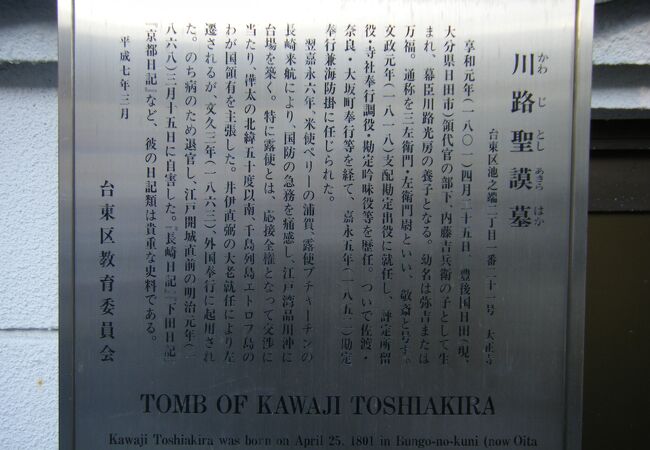 川路聖謨墓
かわ じ とし あきら はか
台東区池之端二丁目一番二十一号 大正寺
享和元年(一八〇一)四月二十五日、豊後国日田(現、
大分県日田市)領代官の部下、内藤吉兵衛の子として生
まれ、幕臣川路光房の養子となる。幼名は弥吉または
万福。通称を三左衛門・左衛門尉といい、敬斎と号す。
文政元年(一八一八)支配勘定出役に就任し、評定所留
役・寺社奉行調役・勘定吟味役等を歴任。ついで佐渡・
奈良・大坂町奉行等を経て、嘉永五年(一八五二)勘定
奉行兼海防掛に任じられた。
翌嘉永六年、米使ペリーの浦賀、露使プチャーチンの
長崎来航により、国防の急務を痛感し、江戸湾品川沖に
台場を築く。特に露使とは、応接全権となって交渉に
当たり、樺太の北緯五十度以南、千島列島エトロフ島の
わが国領有を主張した。井伊直弼の大老就任により左
遷されるが、文久三年(一八六三)、外国奉行に起用され
た。のち病のため退官し、江戸開城直前の明治元年(一
八六八)三月十五日に自害した。『長崎日記』『下田日記』
『京都日記』など、彼の日記類は貴重な史料である。
平成七年三月
台東区教育委員会
TOMB OF KAWAJI TOSHIAKIRA
Kawaji Toshiakira was born on April 25, 1801 in Bungo-no-kuni (now Oita